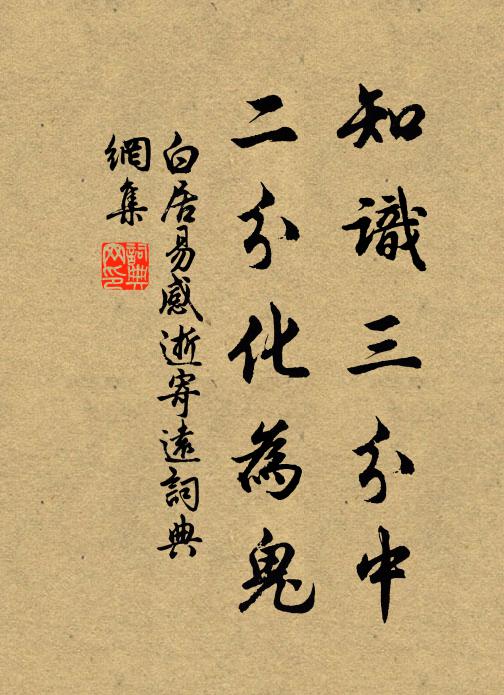 知識三分中
二分化為鬼
白居易感逝寄遠詞典
網集
詞典
网印